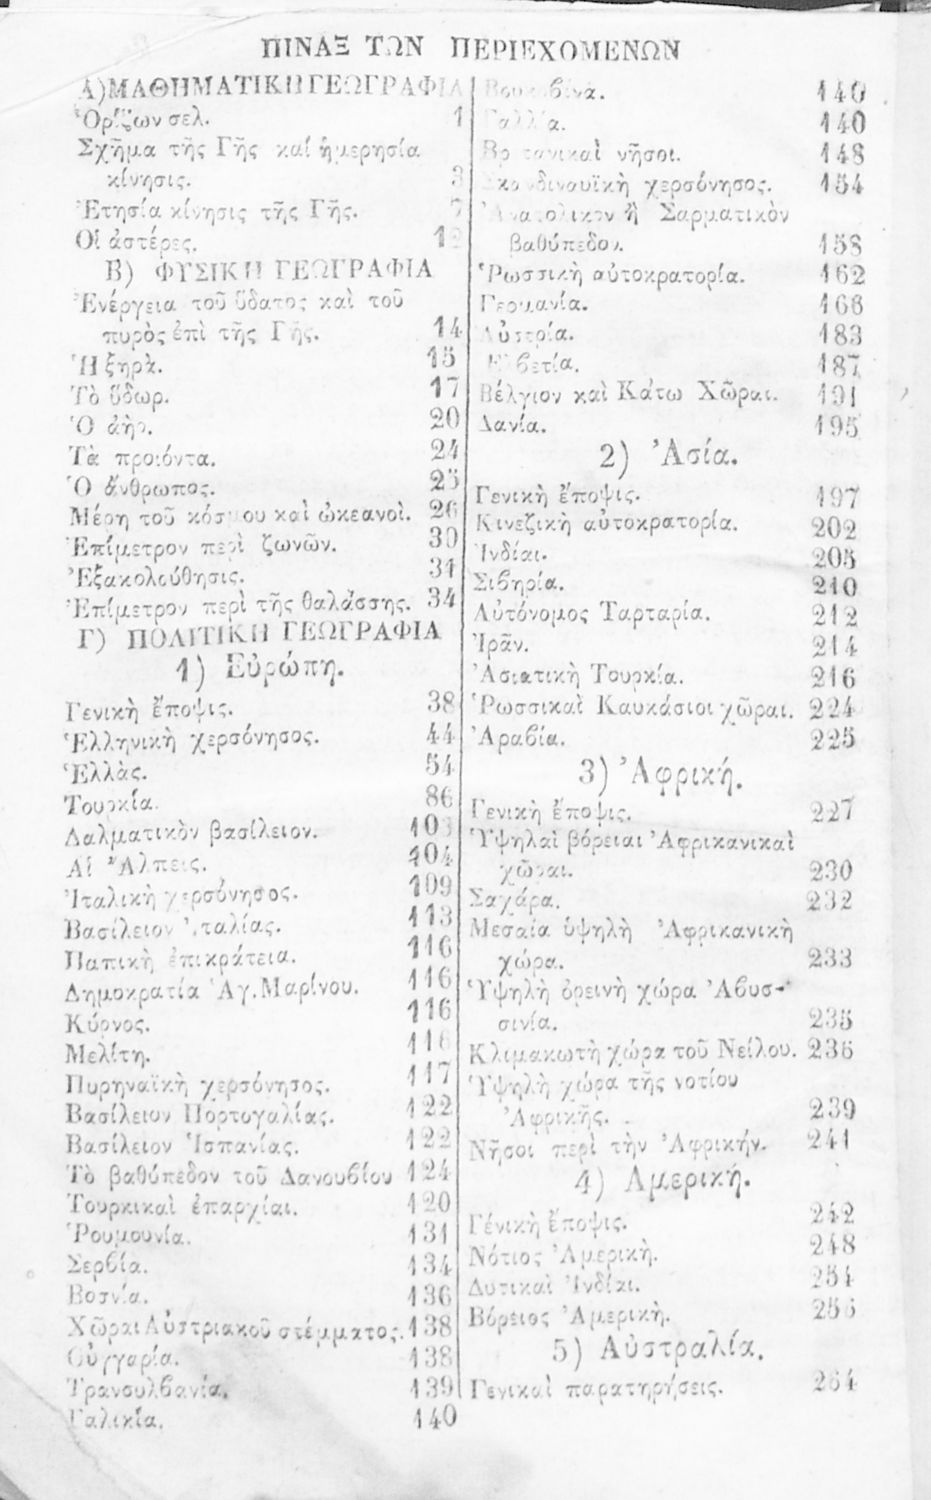 ΠΙΝΑΞ ΤΩΝ ΠΕΡΙΕΧΟΜΕΝΩΝ
Α) ΜΑΘΗΜΑΤΙΚΗ ΓΕΩΓΡΑΦΙΑ
Ὁρίζων σελ. 1
Σχῆμα τῆς Γῆς καί ἡμερησία
κίνησις. 3
Ἐτησία κίνησις τῆς Γῆς. 7
Οἱ ἀστέρες. 12
Β) ΦΥΣΙΚΗ ΓΕΩΓΡΑΦΙΑ
Ἐνέργεια τοῦ ὕδατος καὶ τοῦ
πυρὸς ἐπὶ τῆς Γῆς. 14
Ἡ ξηρὰ. 15
Τὸ ὕδωρ. 17
Ὁ ἀὴρ. 20
Τὰ προϊόντα. 24
Ὁ ἄνθρωπος. 25
Μέρη τοῦ κόσμου καὶ ὠκεανοὶ. 26
Ἐπίμετρον περὶ ζωνῶν. 30
Ἐξακολούθησις. 31
Ἐπίμετρον περὶ τῆς θαλάσσης. 34
Γ) ΠΟΛΙΤΙΚΗ ΓΕΩΓΡΑΦΙΑ
1) Εὐρώπη.
Γενικὴ ἔποψις. 38
Ἑλληνικὴ χερσόνησος. 44
Ἑλλὰς. 54
Τουρκία. 86
Δαλματικὸν βασίλειον. 103
Αἱ Ἄλπεις. 104
Ἰταλικὴ χερσόνησος. 109
Βασίλειον Ἰταλίας. 113
Παπικὴ ἐπικράτεια. 116
Δημοκρατία Ἁγ. Μαρίνου. 116
Κύρνος. 116
Μελίτη. 116
Πυρηναϊκὴ χερσόνησος. 117
Βασίλειον Πορτογαλίας. 122
Βασίλειον Ἱσπανίας. 122
Τὸ βαθύπεδον τοῦ Δανουβίου 124
Τουρκικαὶ ἐπαρχίαι. 120
Ῥουμουνία. 131
Σερβία. 134
Βοσνία. 136
Χῶραι Αὐστριακοῦ στέμματος. 138
Οὑγγαρία. 138
Τρανσυλβανία. 139
Γαλικία. 140
Βουκοβίνα. 140
Γαλλία. 140
Βρετανικαὶ νῆσοι. 148
Σκανδιναυϊκὴ χερσόνησος. 154
Ἀνατολικὸν ἢ Σαρματικὸν
βαθύπεδον. 158
Ῥωσσικὴ αὐτοκρατορία. 162
Γερμανία. 166
Αὐστρία. 183
Ἑλβετία. 187
Βέλγιον καὶ Κάτω Χῶραι. 191
Δανία. 195
2) Ἀσία.
Γενικὴ ἔποψις. 197
Κινεζικὴ αὐτοκρατορία. 202
Ἰνδίαι. 205
Σιβηρία. 210
Αὐτόνομος Ταρταρία. 212
Ἰρᾶν. 214
Ἀσιατικὴ Τουρκία. 216
Ῥωσσικαὶ Καυκάσιοι χῶραι. 224
Ἀραβία. 225
3) Ἀφρική.
Γενικὴ ἔποψις. 227
Ὑψηλαὶ βόρειαι Ἀφρικανικαὶ
χῶραι. 230
Σαχάρα. 232
Μεσαία ὑψηλὴ Ἀφρικανικὴ
χώρα. 233
Ὑψηλὴ ὀρεινὴ χώρα Ἀβυσ-
σινία. 235
Κλιμακωτὴ χώρα τοῦ Νείλου. 236
Ὑψηλὴ χώρα τῆς νοτίου
Ἀφρικῆς. 239
Νῆσοι περὶ τὴν Ἀφρικήν. 241
4) Ἀμερική.
Γένικὴ ἔποψις. 242
Νότιος Ἀμερικὴ. 248
Δυτικαὶ Ἰνδίαι. 254
Βόρειος Ἀμερικὴ. 256
5) Αὐστραλία.
Γενικαὶ παρατηρήσεις. 264